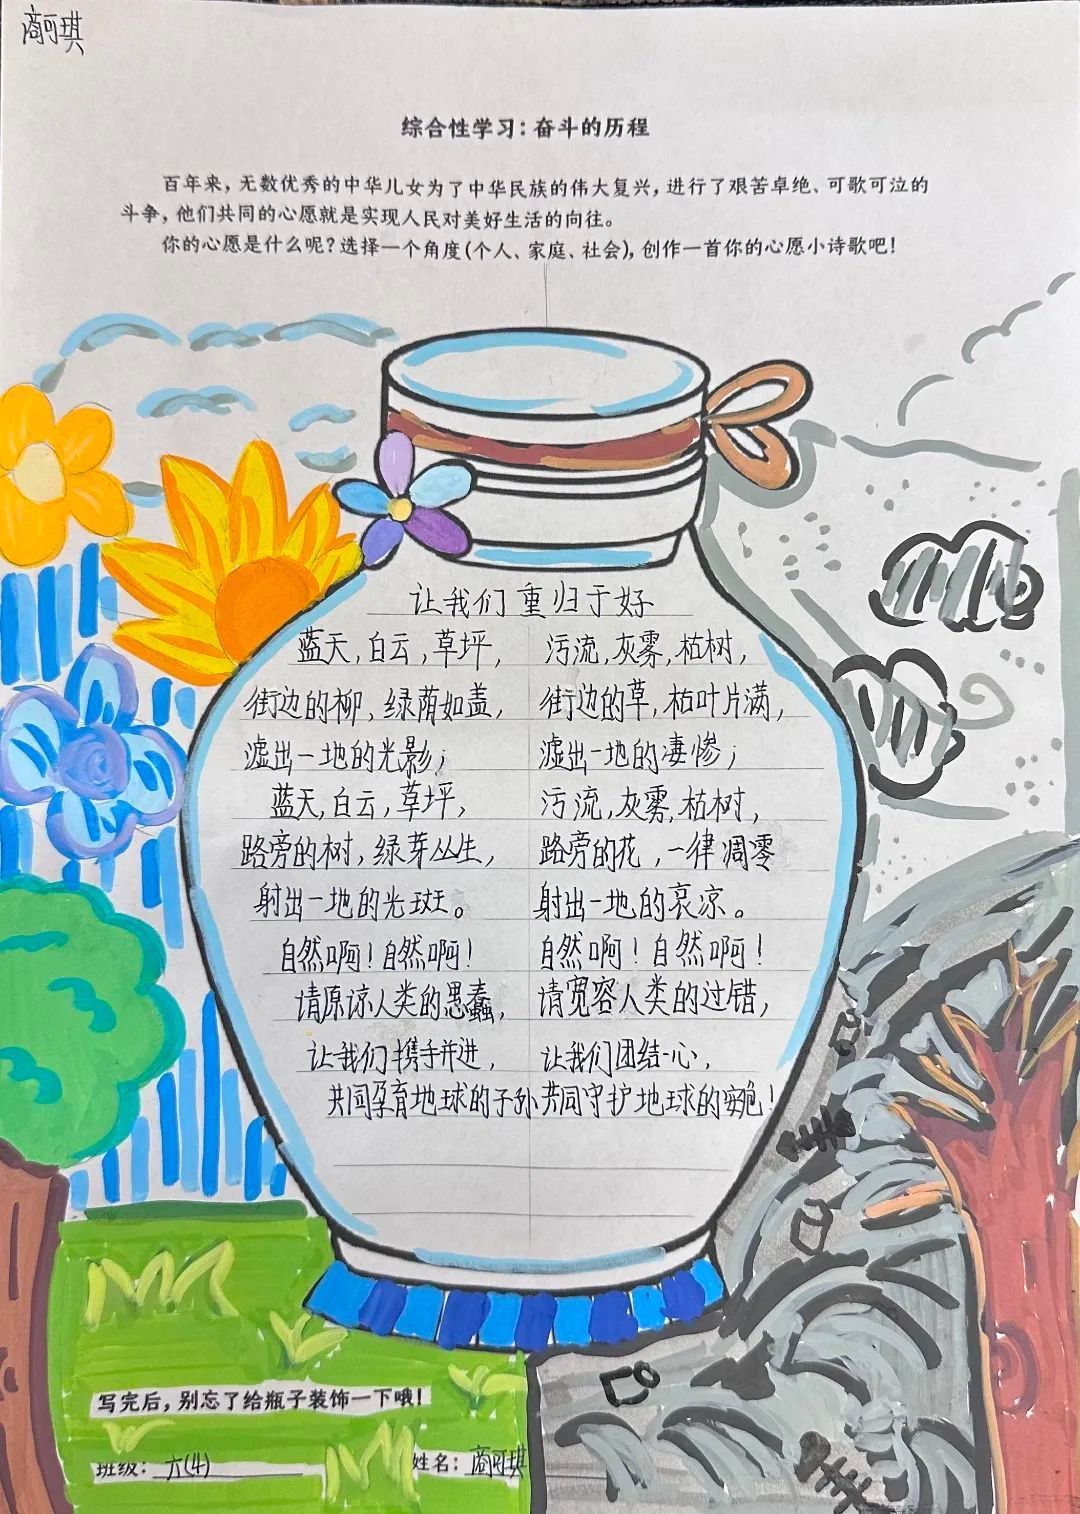 商可琪
综合性学习：奋斗的历程
百年来，无数优秀的中华儿女为了中华民族的伟大复兴，进行了艰苦卓绝、可歌可泣的
斗争，他们共同的心愿就是实现人民对美好生活的向往。
你的心愿是什么呢？选择一个角度(个人、家庭、社会)，创作一首你的心愿小诗歌吧！
让我们重归于好
蓝天，白云，草坪，
街边的柳，绿荫如盖，
滤出一地的光影；
蓝天，白云，草坪，
路旁的树，绿芽丛生，
射出一地的光斑。
自然啊！自然啊！
请原谅人类的愚蠢，
让我们携手并进，
共同孕育地球的子孙
污流，灰雾，枯树，
街边的草，枯叶片满，
滤出一地的凄惨；
污流，灰雾，枯树，
路旁的花，一律凋零
射出一地的哀凉。
自然啊！自然啊！
请宽容人类的过错，
让我们团结一心，
共同守护地球的容貌！
写完后，别忘了给瓶子装饰一下哦！
班级：六(4)
姓名：商可琪